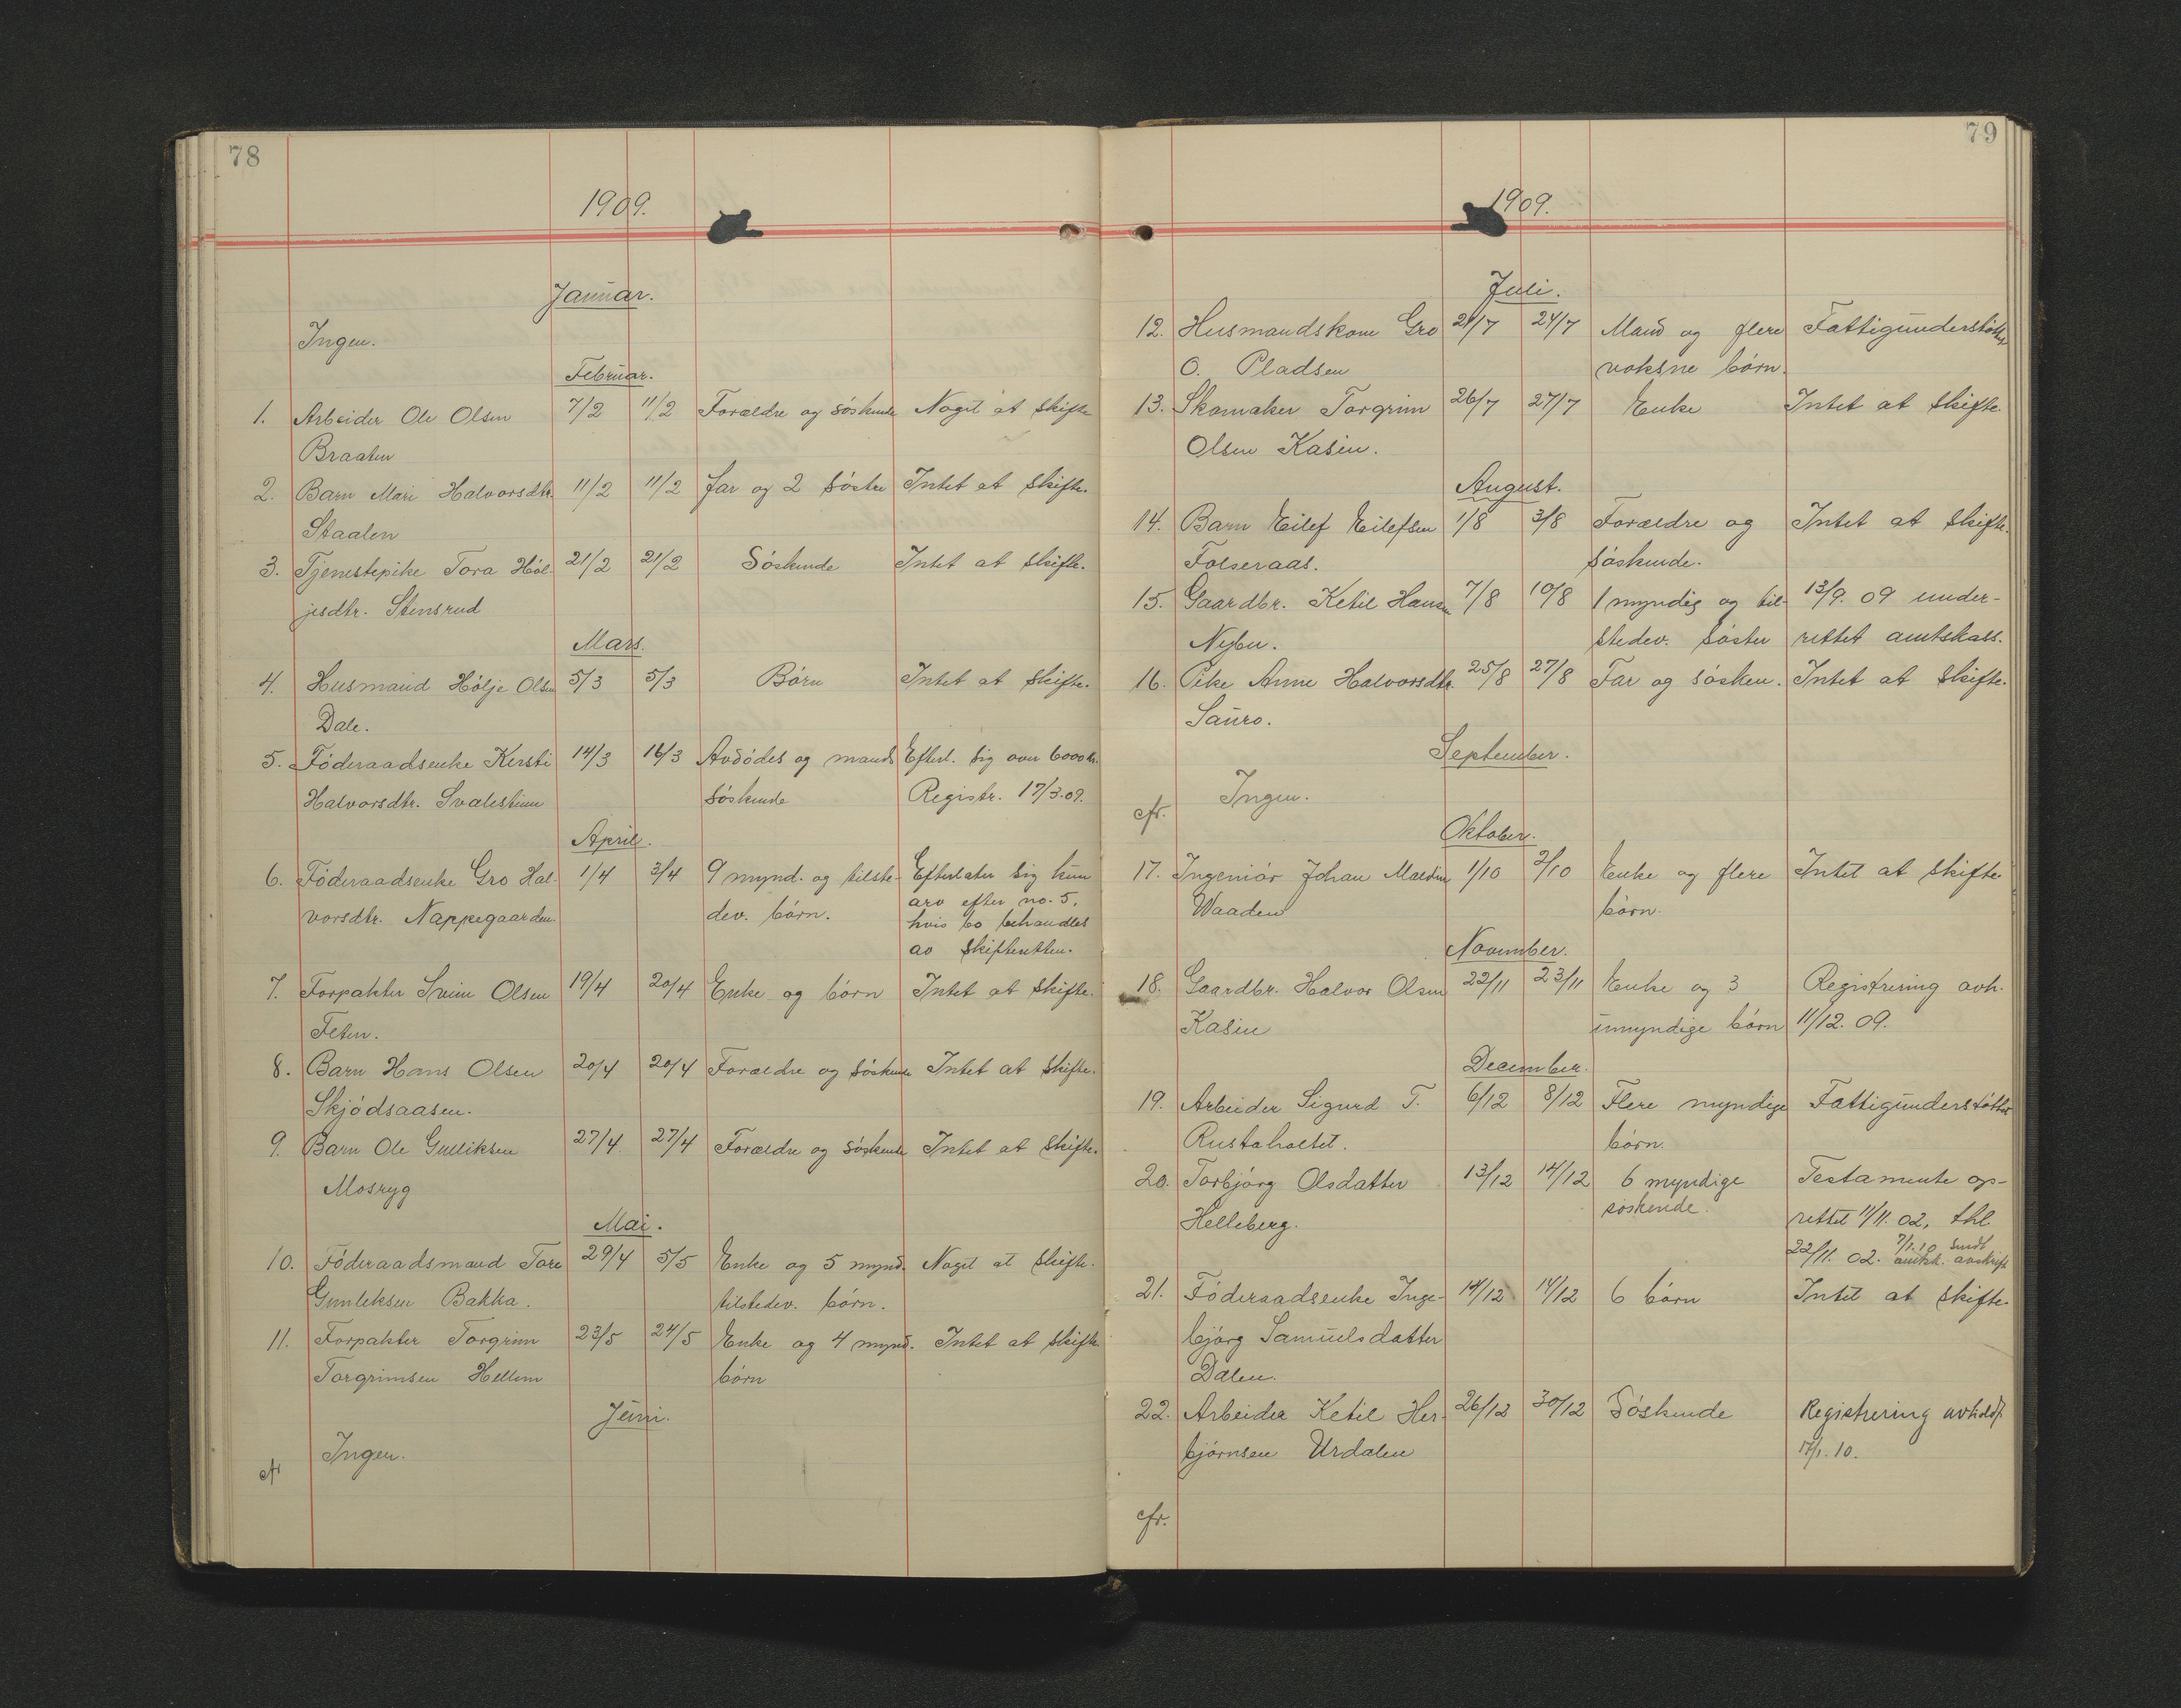 78
1909.
Januar.
Ingen.
Februar.
1. Arbeider Ole Olsen 7/2 11/2 Forældre og søskende Noget at skifte
Braaten
2. Barn Mari Halvorsdtr. 11/2 11/2 far og 2 søstre Intet at skifte.
Staalen
3. Tjenestepike Tora Høl- 21/2 21/2 Søskende Intet at skifte.
jesdtr. Stensrud
Mars.
4. Husmand Hølje Olsen 5/3 5/3 Børn Intet at skifte.
Dale.
5. Føderaadsenke Kersti 14/3 16/3 Avdødes og mands Efterl. sig over 6000 kr.
Halvorsdtr. Svalesteen søskende Registr. 17/3.09.
April.
6. Føderaadsenke Gro Hal- 1/4 3/4 9 mynd. og tilste- Efterlater sig kun
vorsdtr. Nappegaarden. dev. børn. arv efter no. 5,
hvis bo behandles
av skifteretten.
7. Forpakter Svein Olsen 19/4 20/4 Enke og børn Intet at skifte.
Feten.
8. Barn Hans Olsen 20/4 20/4 Forældre og søskende Intet at skifte.
Skjødsaasen.
9. Barn Ole Gulliksen 27/4 27/4 Forældre og søskende Intet at skifte.
Mosryg
Mai.
10. Føderaadsmand Tore 29/4 5/5 Enke og 5 mynd. Noget at skifte.
Gunleksen Bakka. tilstedev. børn.
11. Forpakter Torgrim 23/5 24/5 Enke og 4 mynd. Intet at skifte.
Torgrimsen Hellem børn
Juni.
Ingen.
cfr
79
1909.
Juli.
12. Husmandskone Gro 21/7 24/7 Mand og flere Fattigunderstøttet
O. Pladsen voksne børn.
13. Skomaker Torgrim 26/7 27/7 Enke Intet at skifte.
Olsen Kasin.
August.
14. Barn Eilef Eilefsen 1/8 3/8 Forældre og Intet at skifte.
Folseraas. søskende.
15. Gaardbr. Ketil Hansen 7/8 10/8 1 myndig og til- 13/9. 09 under-
Nybu. stedev. søster rettet amtskass.
16. Pike Anne Halvorsdtr. 25/8 27/8 Far og søsken. Intet at skifte.
Sauro.
September.
Ingen.
cfr.
Oktober.
17. Ingeniør Johan 1/10 2/10 Enke og flere Intet at skifte
Waaden børn.
November.
18. Gaardbr. Halvor Olsen 22/11 23/11 Enke og 3 Registrering avh.
Kasin umyndige børn 11/12. 09.
December.
19. Arbeider Sigurd T. 6/12 8/12 Flere myndige Fattigunderstøttet
Rustaholtet. børn.
20. Torbjørg Olsdatter 13/12 14/12 6 myndige Testamente op-
Helleberg. søskende. rettet 11/11. 02, thl
22/11. 02. 7/1.10 sendt amtsk. avskrift
21. Føderaadsenke Inge- 14/12 14/12 6 børn Intet at skifte.
bjørg Samuelsdatter
Dalen.
22. Arbeider Ketil Her- 26/12 30/12 Søskende Registrering avholdt
bjørnsen Urdalen 17/1. 10.
cfr.